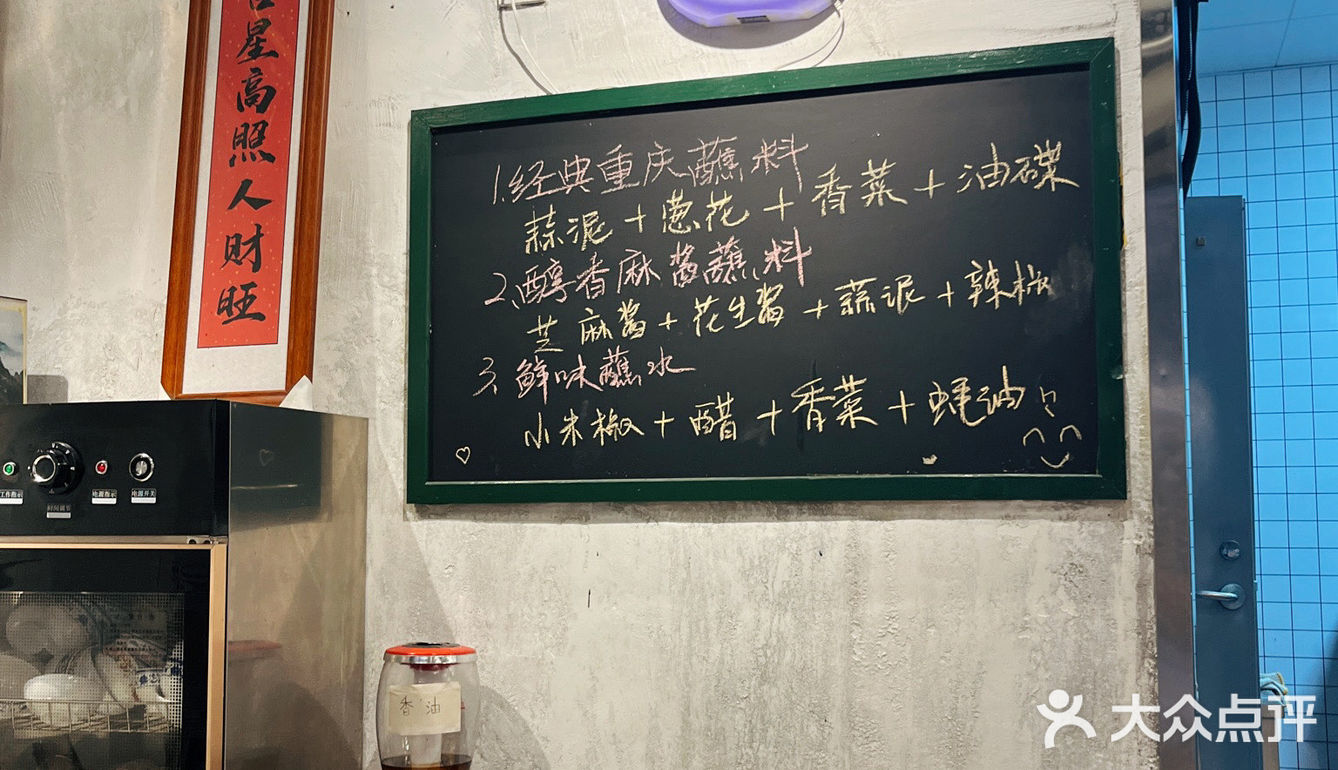 吉星高照人财旺
1.经典重庆蘸料
蒜泥+葱花+香菜+油碟
2、醇香麻酱蘸料
芝麻酱+花生酱+蒜泥+辣椒
3、鲜味蘸水
小米椒+醋+香菜+蚝油!!
工作指示
时间调节
电源指示
电源开关
香油
大众点评